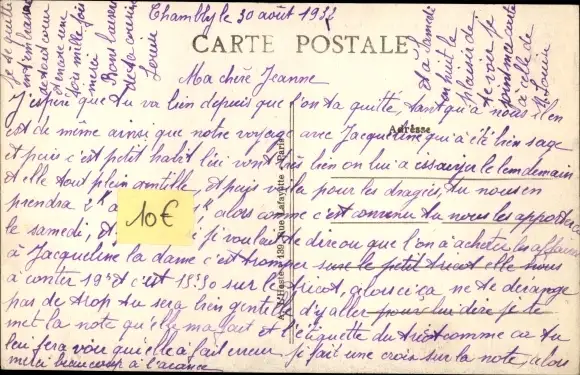 Chambly le 30 août 193
CARTE POSTALE
Ma chère Jeanne
J'espère que tu va bien depuis que l'on ta quitté, tant qu'à nous il en
est de même ainsi que notre voyage avec Jacqueline qui à été bien sage
Adresse
et puis c'est petit habit lui vont très bien on lui a essayer le lendemain
et elle tout plein gentille, et puis voila pour les dragées tu nous en
prendra 2k alors comme c'est convenu tu nous les apportera
10€
le samedi, je voulais te dire ou que l'on à acheter les affaires
à Jacqueline la dame c'est tromper sur le petit tricot elle nous
à conter 19f et c'est 15f90 sur le tricot, alors si ça ne te derange
pas de trop tu sera bien gentille d'y aller pour lui dire je te
met la note qu'elle ma fait et l'étiquette du tricot comme ca tu
leu fera voir qu'elle à fait erreur je fait une croix sur la note, alors
merci beaucoup à l'avance
je te quitte
en t'embrassant
de tout cœur
encore une
fois mille fois
merci
Bons baisers
de ta cousine
Louise
et à Samedi
en huit le
plaisir de
te voir je
joint ma carte
à celle de
Louise
139 Rue Lafayette - Paris